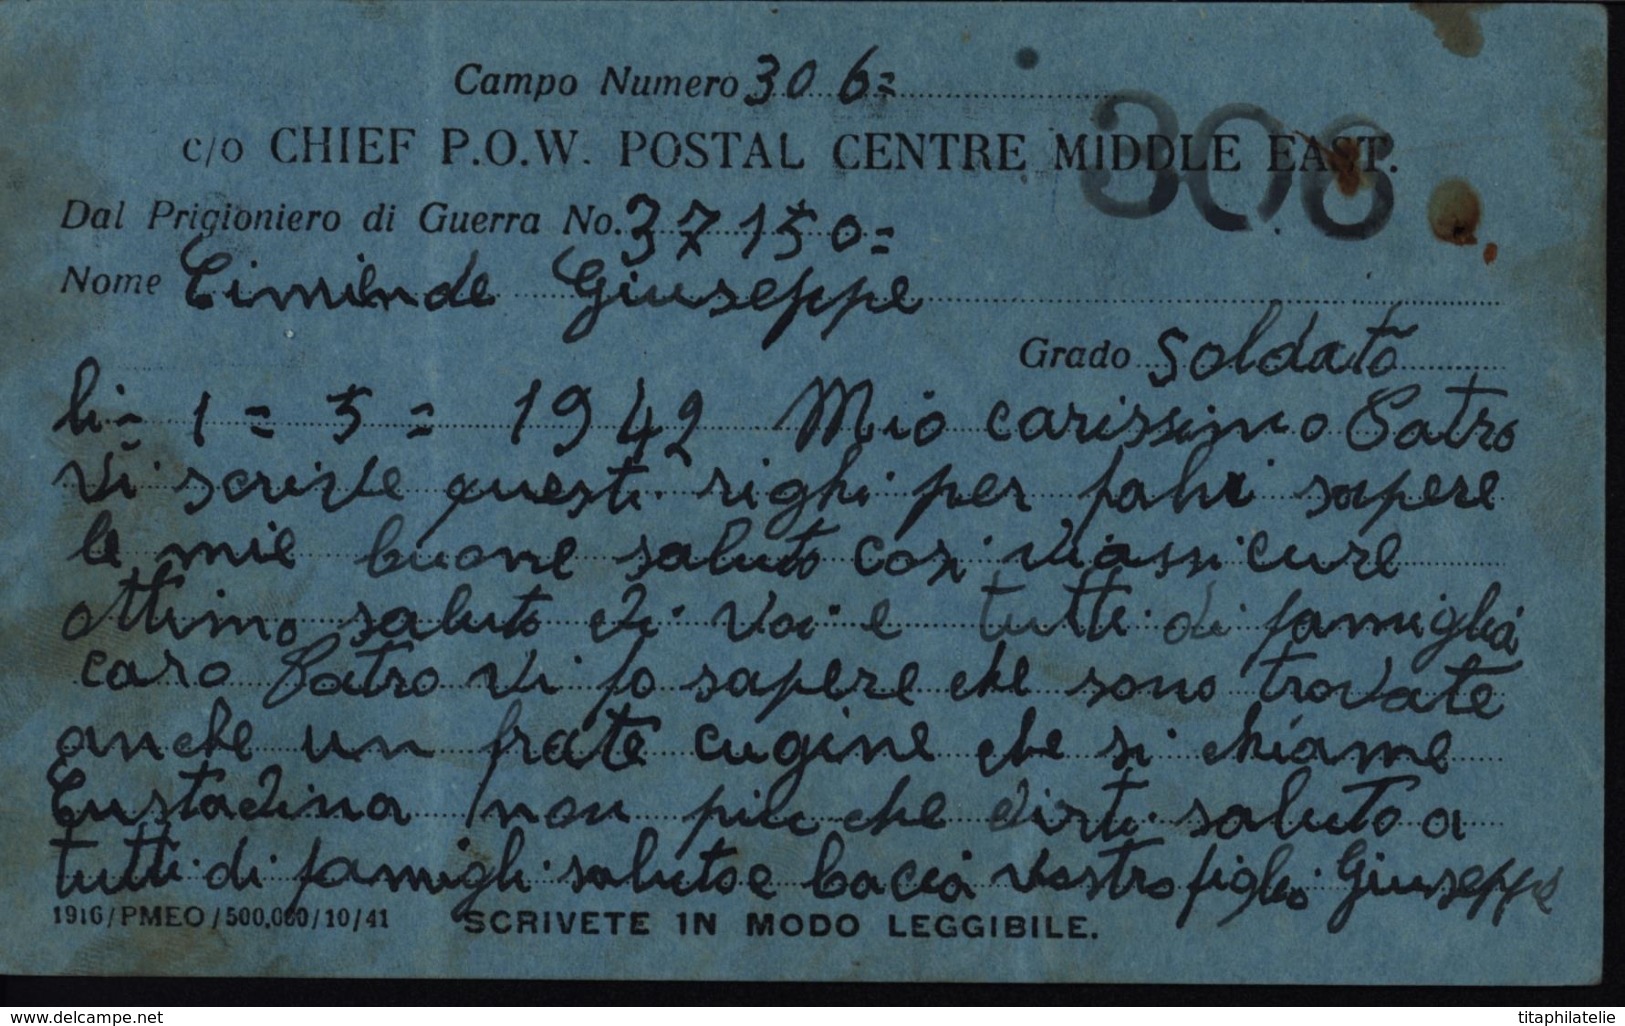 Campo Numero 306=
c/o CHIEF P.O.W. POSTAL CENTRE MIDDLE EAST.
308
Dal Prigioniero di Guerra No. 37150=
Nome Giuseppe
Grado Soldato
li= 1 = 5 = 1942 Mio carissimo Patro
Vi scrive questi righi per farvi sapere
le mie buone saluto cosi viassicure
ottimo saluto di Voi e tutti di famiglia
caro Patro Vi fo sapere che sono trovate
anche un frate cugine che si chiame
non piu che dirti saluto a
tutti di famigli saluto e bacia vostro figlio Giuseppe
1916/PMEO/500,000/10/41 SCRIVETE IN MODO LEGGIBILE.
www.delcampe.net
titaphilatelie